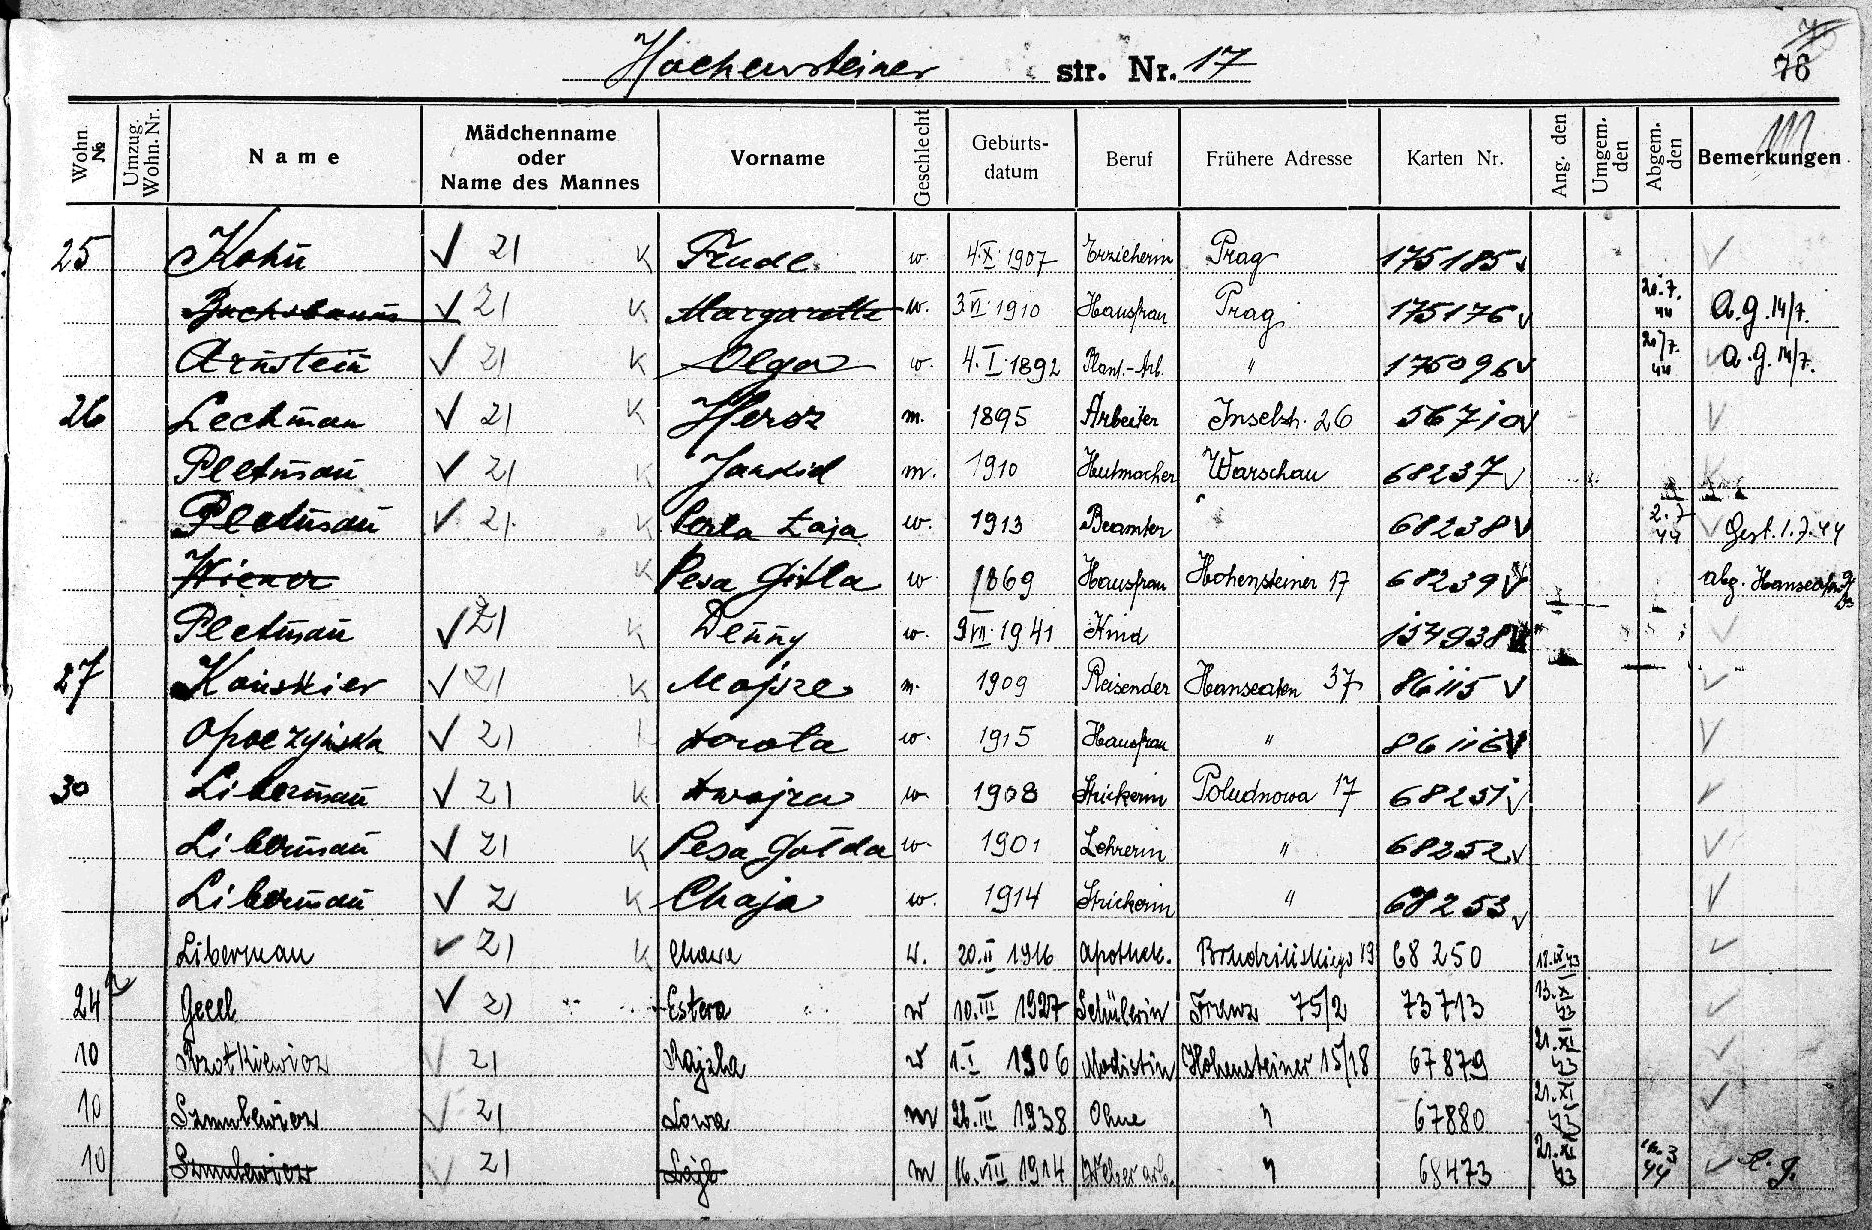 Hochensteiner str. Nr. 17
78
Wohn. № Umzug. Wohn. Nr. Name Mädchenname oder Name des Mannes Vorname Geschlecht Geburts-datum Beruf Frühere Adresse Karten Nr. Ang. den Umgem. den Abgem. den Bemerkungen
25 Kohn 21 K Frude w. 4.X.1907 Erzieherin Prag 175185
Buchsbaum 21 K Margarette w. 3.VI.1910 Hausfrau Prag 175176 20.7.44 A.g.14/7.
Arnstein 21 K Olga w. 4.I.1892 " 175096 20/7.44 a.g.14/7.
26 Lechman 21 K Hersz m. 1895 Arbeiter Inselstr. 26 56710
Pletman 21 K Jankiel m. 1910 Hutmacher Warschau 68237
Pletman 21 K Perla Łaja w. 1913 Beamter " 68238 2.7.44 Gest. 1.7.44
Wiener K Pesa Gitla w. 1869 Hausfrau Hohensteiner 17 68239 abg.
Pletman 21 K Denny w. 9.VII.1941 Kind 154938
27 Konskier 21 K Mojsze m. 1909 Reisender Hanseaten 37 86115
Opoczyńska 21 Dorota w. 1915 Hausfrau " 86116
30 Liberman 21 K Dwojra w 1908 Strickerin Poludnowa 17 68251
Liberman 21 K Pesa Golda w. 1901 Lehrerin " 68252
Liberman 2 K Chaja w. 1914 Strickerin " 68253
Liberman 21 K Chawa w. 20.II 1916 Apothek. Brudzińskiego 19 68250
24 Gecel 21 Estera w 10.III 1927 Schülerin Franz 75/2 73713 13.XI 43
10 21 Rajzla w 1.I 1906 Modistin Hohensteiner 15/18 67879 21.XI 43
10 Szmulewicz 21 m 26.III 1938 Ohne " 67880 21.XI 43
10 Szmulewicz 21 Lajb m 16.VIII 1914 Weber arb. " 68473 21.XI 43 44